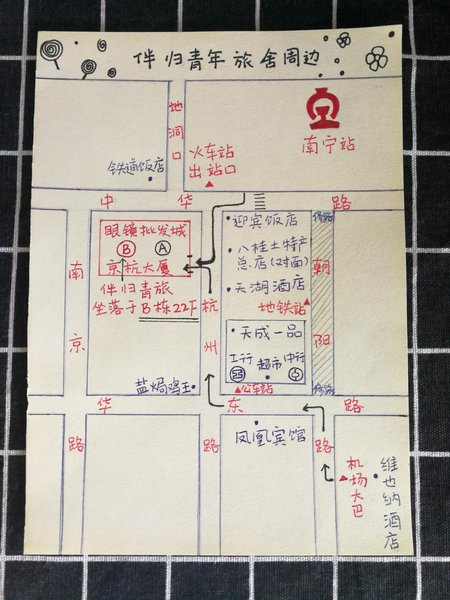 伴归青年旅舍周边
地洞口
铁道饭店
火车站
出站口
南宁站
中华路
眼镜批发城
B
A
京杭大厦
伴归青旅
坐落于B栋22F
南京路
杭州路
迎宾饭店
八桂土特产
总店(对面)
天湖酒店
地铁站
修路
朝阳路
天成一品
工行
超市
中行
修路
盐焗鸡王
公车站
华东路
凤凰宾馆
机场大巴
维也纳酒店